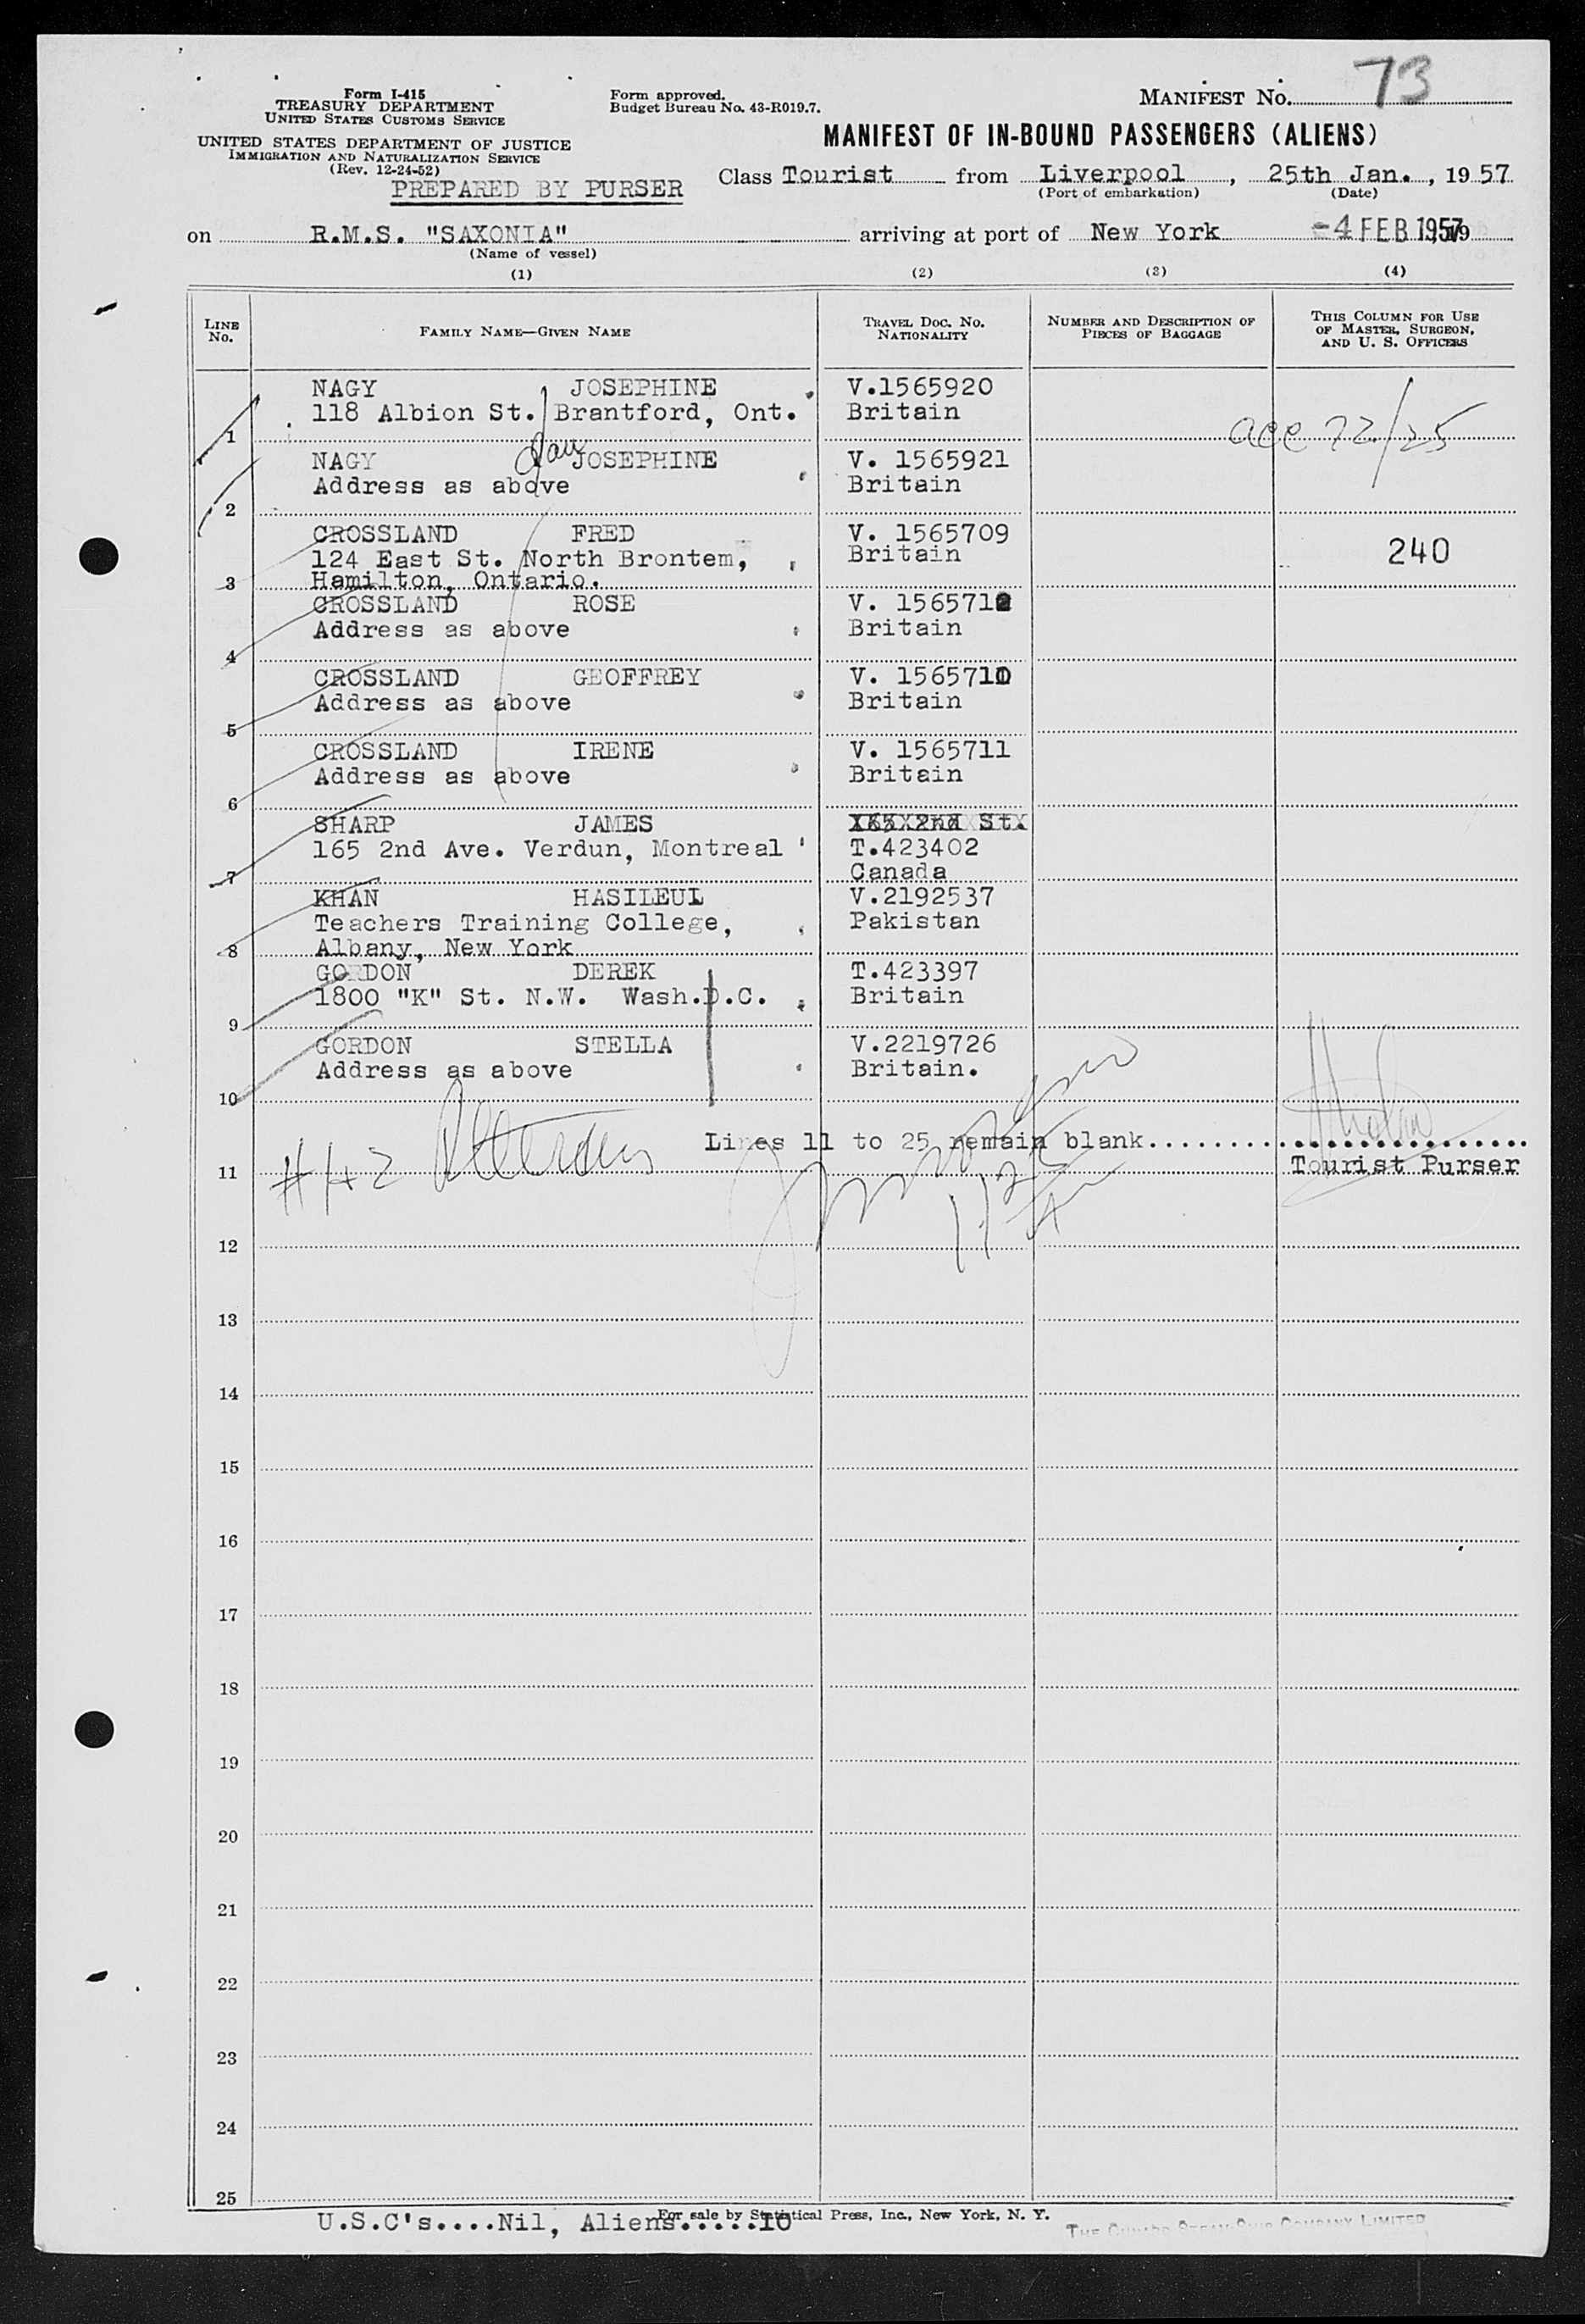 Form I-415
TREASURY DEPARTMENT
UNITED STATES CUSTOMS SERVICE
UNITED STATES DEPARTMENT OF JUSTICE
IMMIGRATION AND NATURALIZATION SERVICE
(Rev. 12-24-52)
PREPARED BY PURSER
Form approved.
Budget Bureau No. 43-R019.7.
MANIFEST NO. 73
MANIFEST OF IN-BOUND PASSENGERS (ALIENS)
Class Tourist from Liverpool, 25th Jan., 1957
(Port of embarkation) (Date)
on R.M.S. "SAXONIA" arriving at port of New York -4 FEB 1957 19
(Name of vessel)
(1) (2) (3) (4)
LINE NO. FAMILY NAME—GIVEN NAME TRAVEL DOC. NO. NATIONALITY NUMBER AND DESCRIPTION OF PIECES OF BAGGAGE THIS COLUMN FOR USE OF MASTER, SURGEON, AND U. S. OFFICERS
NAGY JOSEPHINE V.1565920
118 Albion St. Brantford, Ont. Britain
1
NAGY JOSEPHINE V. 1565921
Address as above Britain
2
CROSSLAND FRED V. 1565709
124 East St. North Brontem, Britain 240
3 Hamilton, Ontario.
CROSSLAND ROSE V. 1565712
Address as above Britain
4
CROSSLAND GEOFFREY V. 1565710
Address as above Britain
5
CROSSLAND IRENE V. 1565711
Address as above Britain
6
SHARP JAMES 165 2nd St.
165 2nd Ave. Verdun, Montreal T.423402
7 Canada
KHAN HASILEUL V.2192537
Teachers Training College, Pakistan
8 Albany, New York
GORDON DEREK T.423397
1800 "K" St. N.W. Wash.D.C. Britain
9
GORDON STELLA V.2219726
Address as above Britain.
10
Lines 11 to 25 remain blank........................
11 Tourist Purser
12
13
14
15
16
17
18
19
20
21
22
23
24
25
For sale by Statistical Press, Inc., New York, N. Y.
U.S.C's....Nil, Aliens.....10
THE CUNARD STEAM-SHIP COMPANY LIMITED